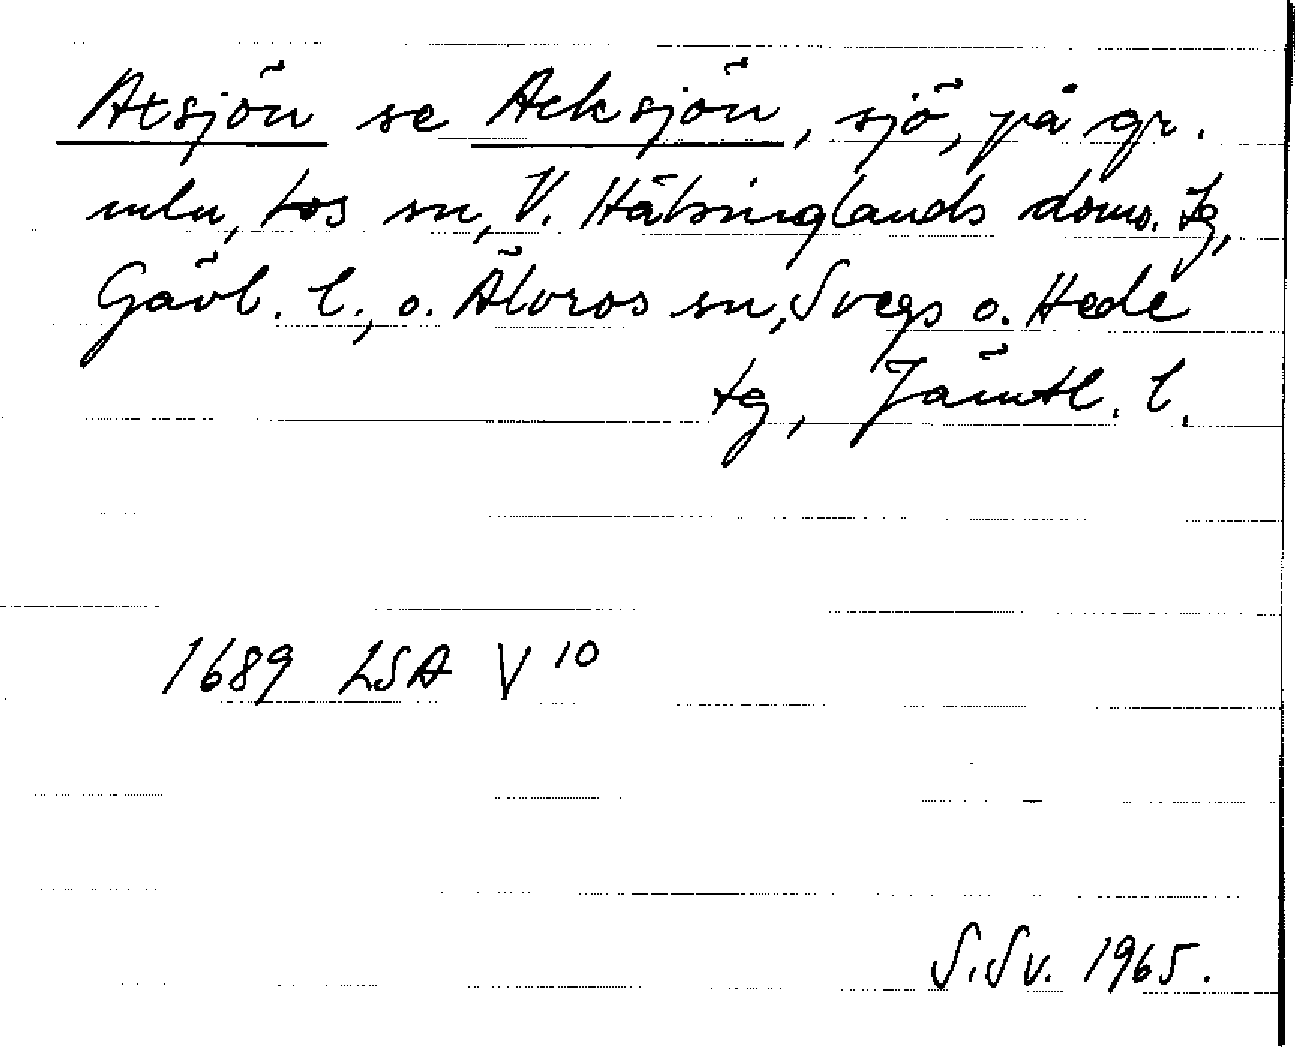 Atsjön se Acksjön, sjö, på gr.
mln, Los sn, V. Hälsinglands doms. tg,
Gävl. l., o. Älvros sn, Svegs o. Hede
tg, Jämtl. l.
1689 LSA V 10
S.Sv. 1965.